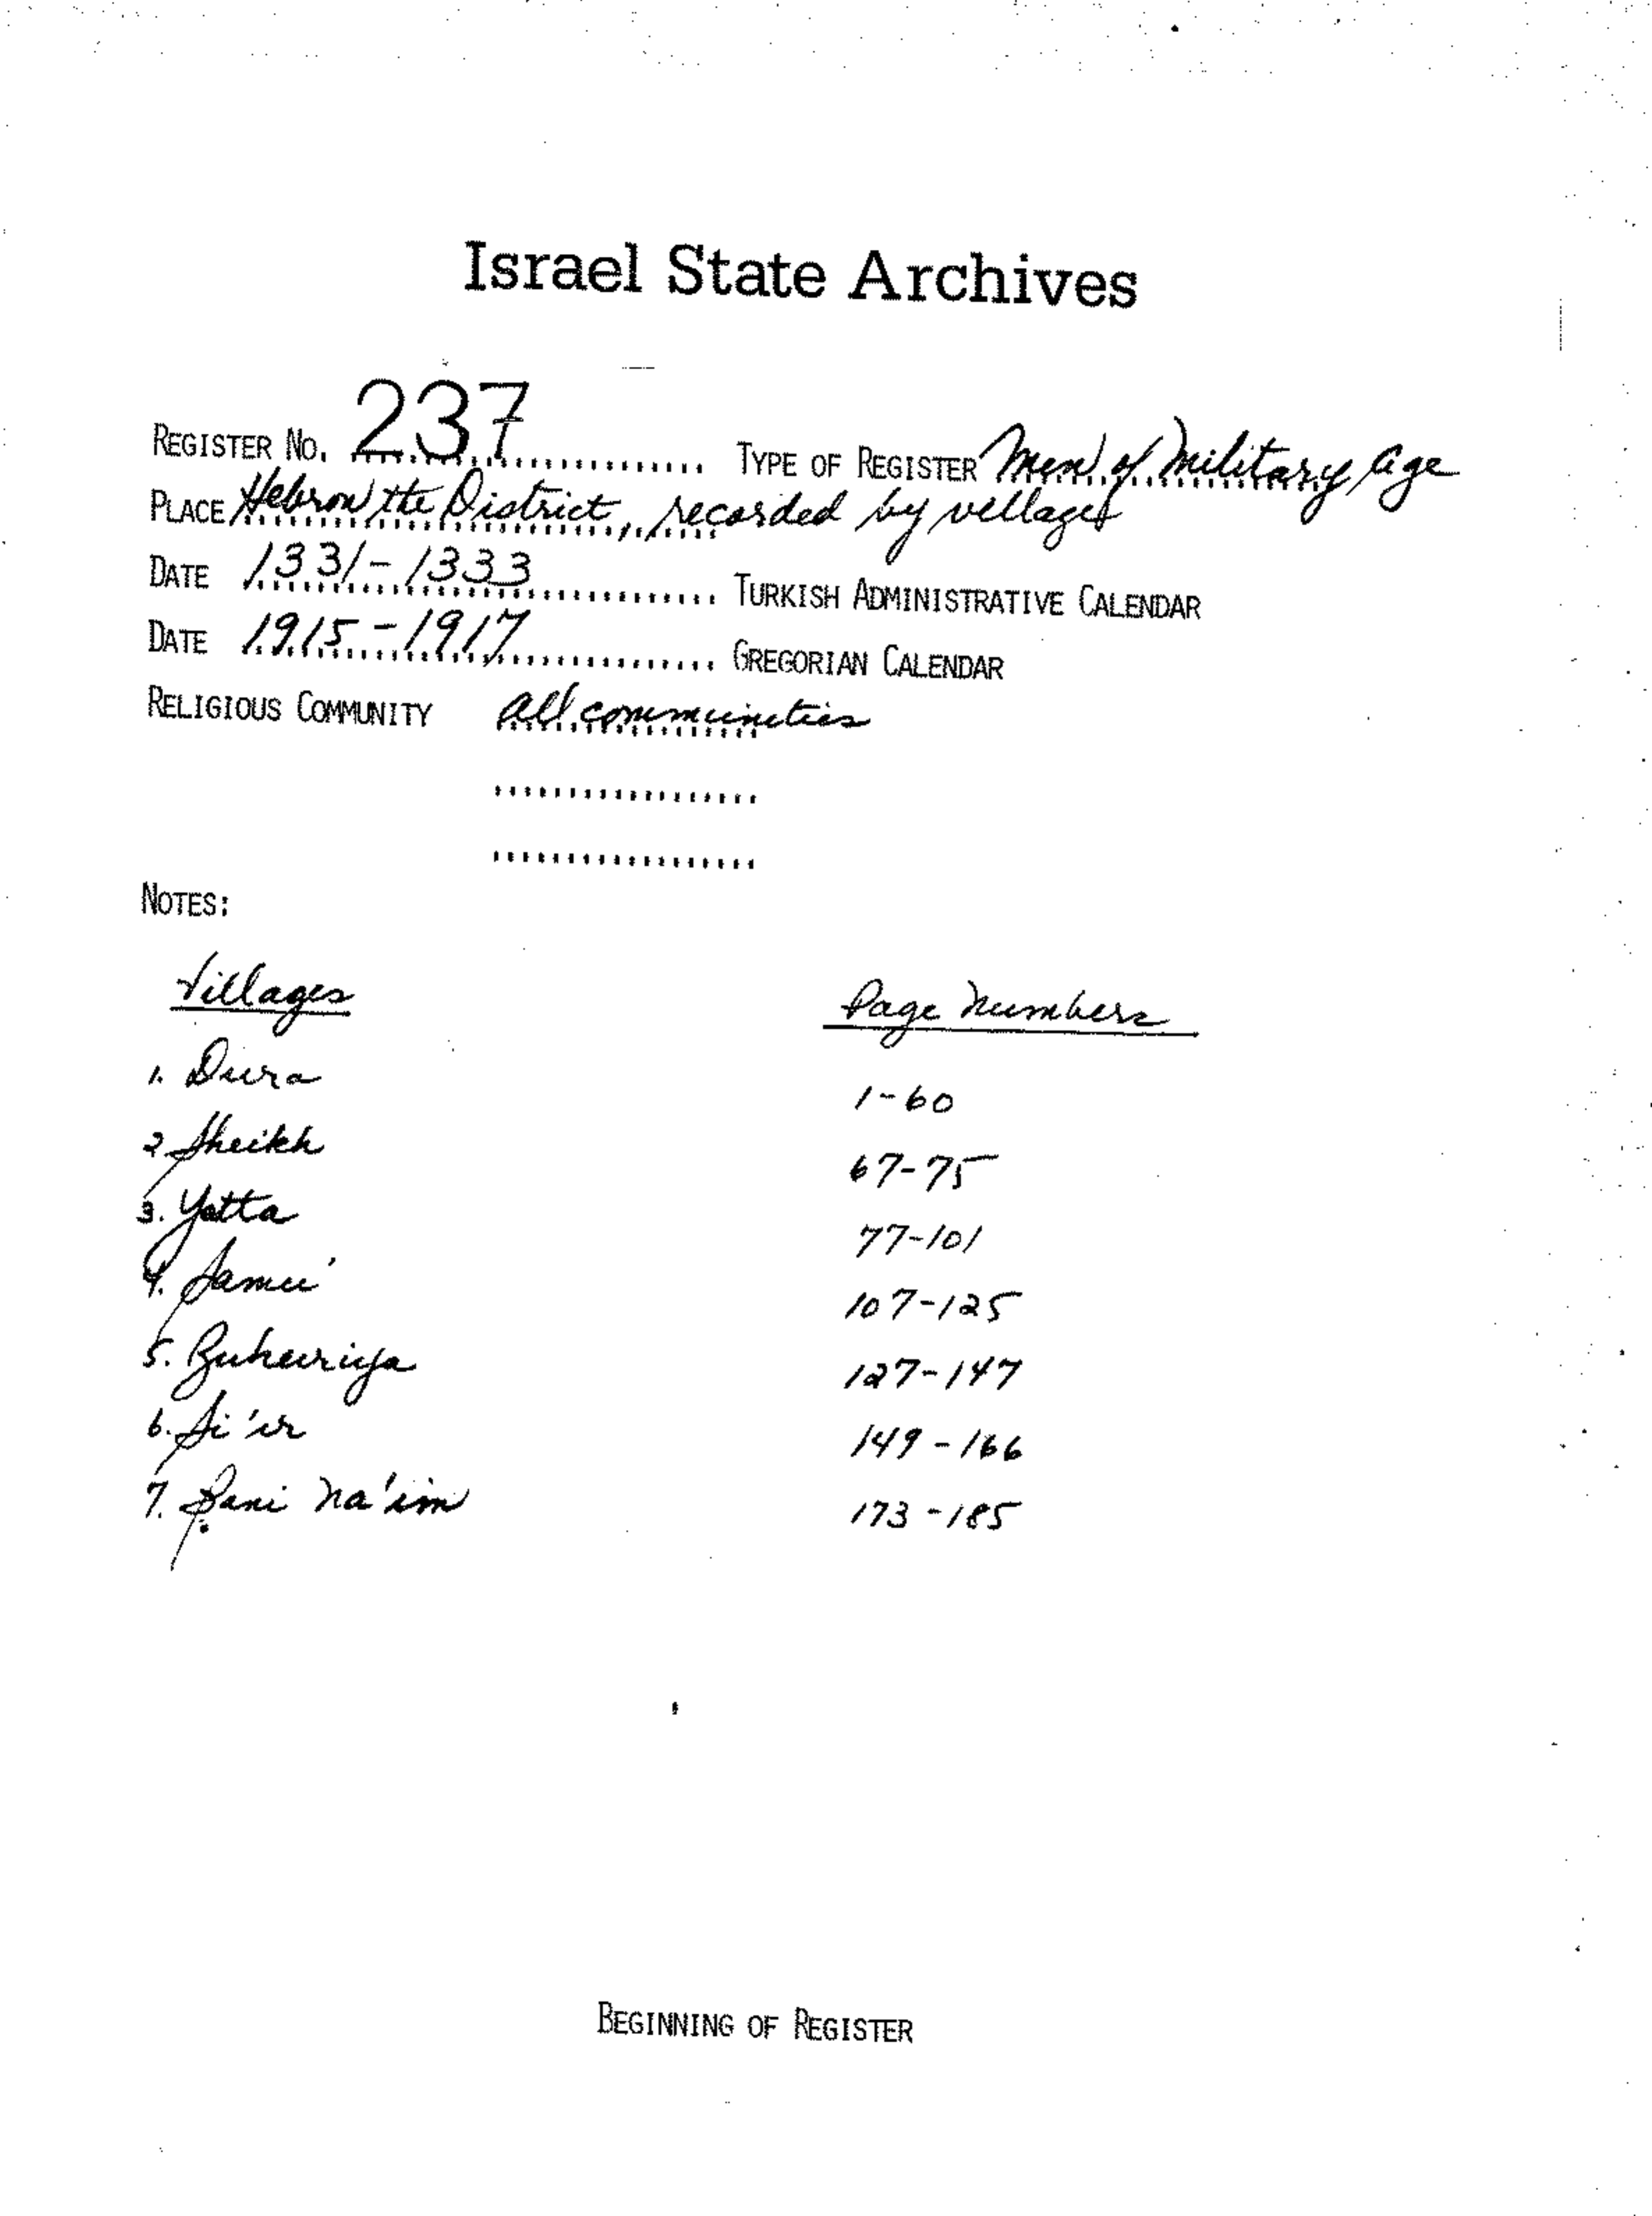 Israel State Archives
REGISTER NO. 237 TYPE OF REGISTER Men of Military Age
PLACE Hebron the District, recorded by villages
DATE 1331-1333 TURKISH ADMINISTRATIVE CALENDAR
DATE 1915-1917 GREGORIAN CALENDAR
RELIGIOUS COMMUNITY all communities
NOTES:
Villages Page Numbers
1. Dura 1-60
2 Sheikh 67-75
3. Yatta 77-101
4. Samu' 107-125
5. Zuheiriya 127-147
6. Si'ir 149-166
7. Bani Na'im 173-185
BEGINNING OF REGISTER